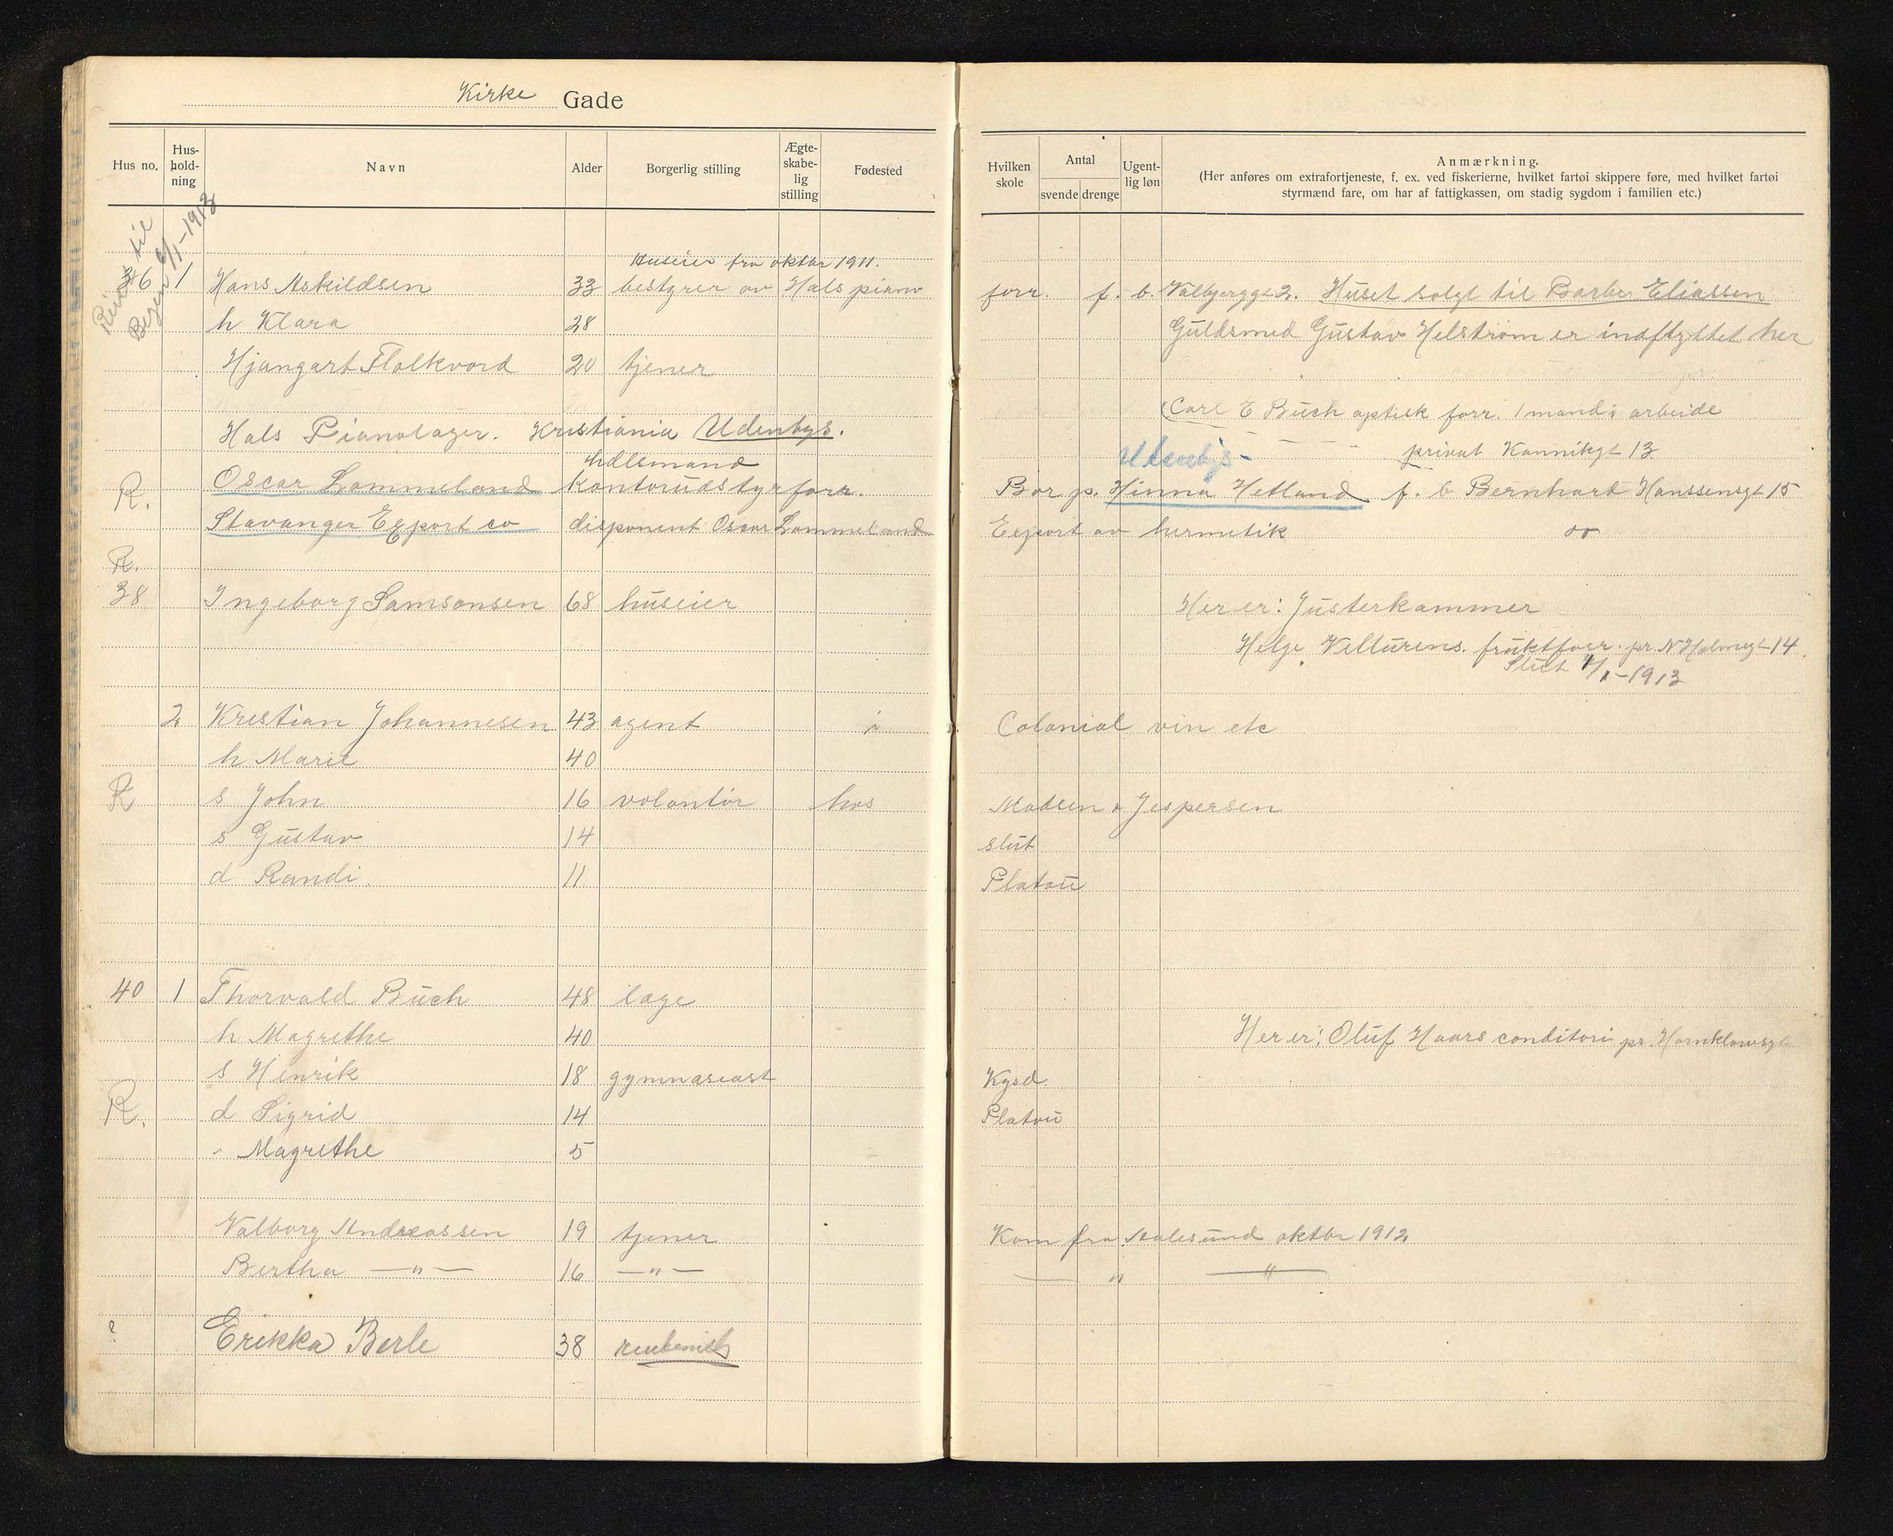 Kirke Gade
Hus no. Hus-hold-ning Navn Alder Borgerlig stilling Ægte-skabe-lig stilling Fødested
til
Begen 6/1-1913
Huseier fra oktbr 1911.
36 1 Hans Askildsen 33 bestyrer av Hals piano
h Klara 28
Hjangart Folkvord 20 tjener
Hals Pianolager. Kristiania Udenbys.
Udlsmand
R. Oscar Lommeland Kontorudstyrforr.
Stavanger Export co disponent Oscar Lommeland
R.
38 Ingeborg Samsonsen 68 huseier
2 Kristian Johannesen 43 agent i
h Marie 40
R s John 16 volontør hos
s Gustav 14
d Randi. 11
40 1 Thorvald Buch 48 læge
h Magrethe 40
s Henrik 18 gymnasiast
R. d Sigrid 14
" Magrethe 5
Valborg Andreassen 19 tjener
Bertha —"— 16 —"—
? Erikka Berle 38
Hvilken skole Antal svende drenge Ugent-lig løn Anmærkning.
(Her anføres om extrafortjeneste, f. ex. ved fiskerierne, hvilket fartøi skippere føre, med hvilket fartøi
styrmænd fare, om har af fattigkassen, om stadig sygdom i familien etc.)
forr. f. b. Valbjerggt 2. Huset solgt til Barber Eliassen
Guldsmed Gustav Helstrøm er indflyttet her
(Carl E Buch optisk forr. 1 mand i arbeide
Udenbys - — — " privat Kannikgt 13
Bor p. Hinna Hetland f. b Bernhard Hanssensgt 15
Export av hermetik do
Her er: Justerkammer
Helge Velturens. fruktforr. pr. N Holmegt 14.
Slut 4/1-1913
Colonial vin etc
Madsen & Jespersen
slut
Platou
Her er: Oluf Haars conditori pr.
Kgsd.
Platou
Kom fra Aalesund oktbr 1912
— " — " —